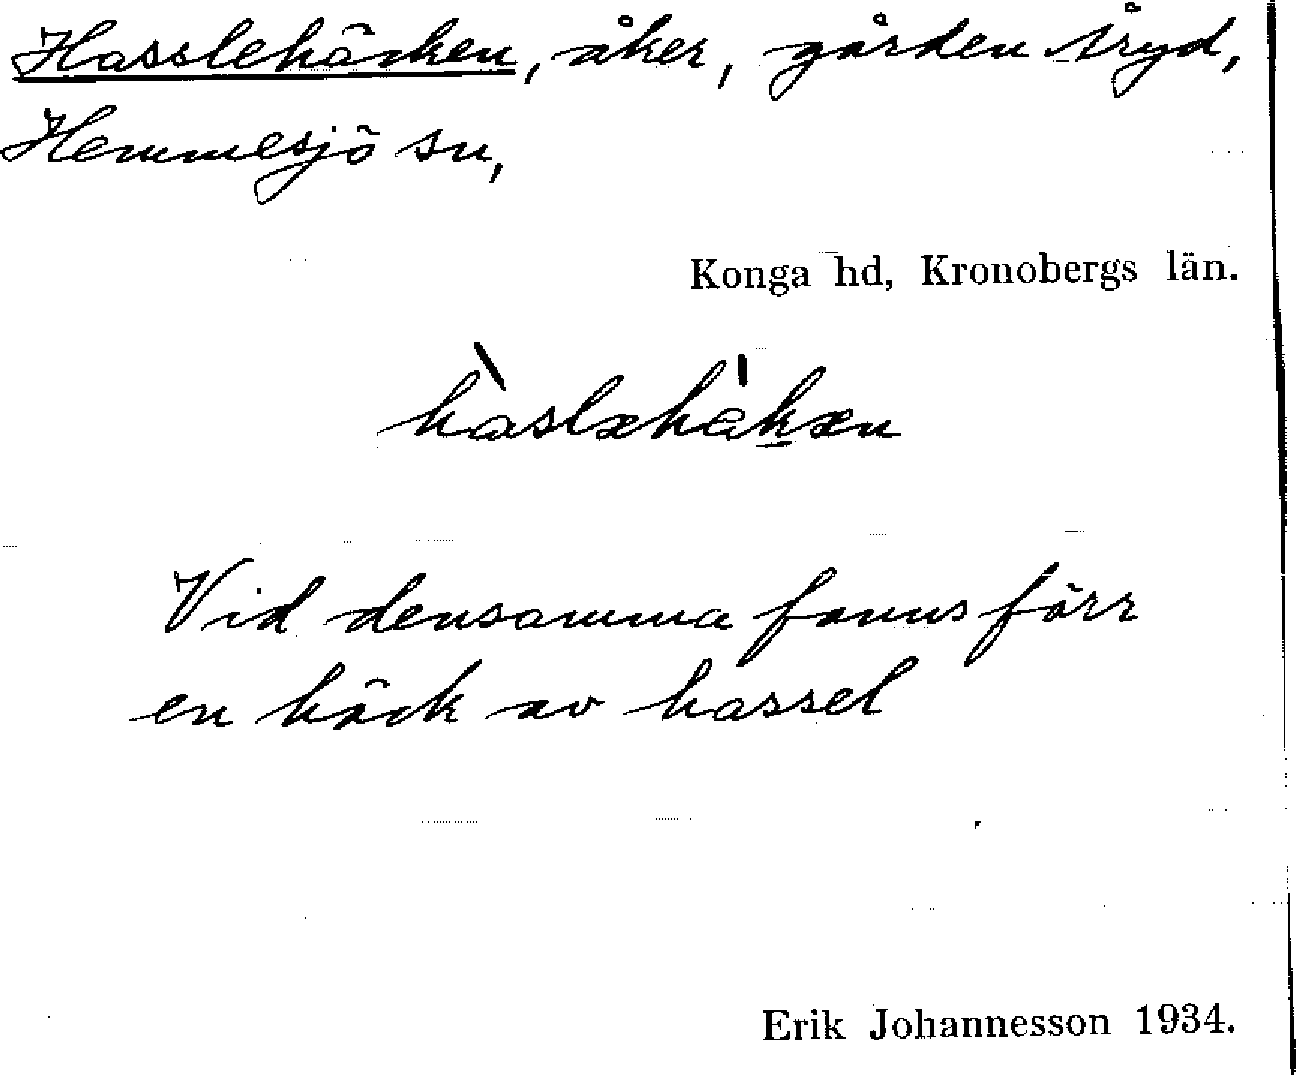 Hasslehäcken, åker, gården Åryd,
Hemmesjö sn,
Konga hd, Kronobergs län.
hàslæhäkæn
Vid densamma fanns förr
en häck av hassel
Erik Johannesson 1934.